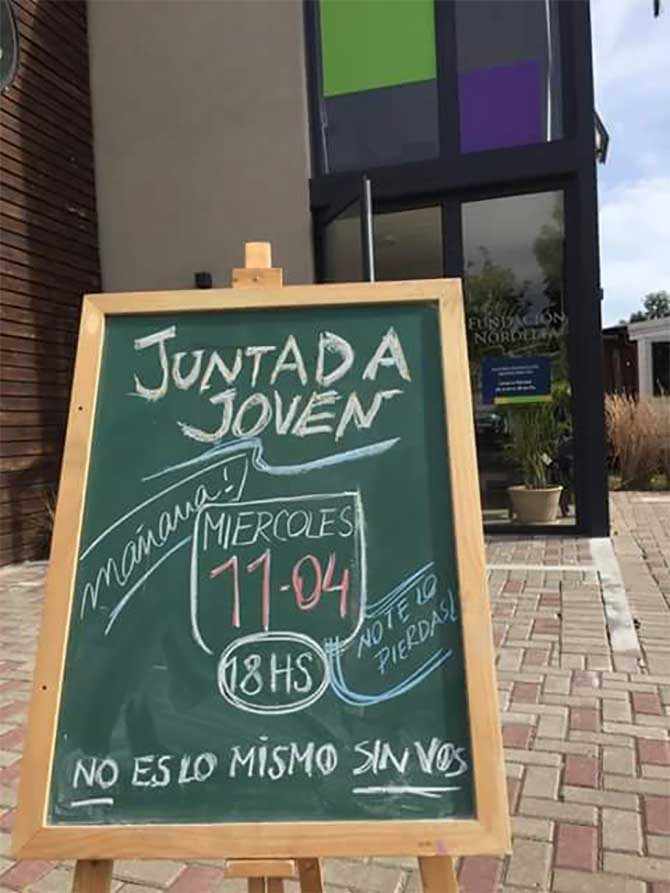 JUNTADA
JOVEN
mañana!
MIERCOLES
11-04
18HS
NO TE LO
PIERDAS!
NO ES LO MISMO SIN VOS
FUNDACIÓN
NORDELTA